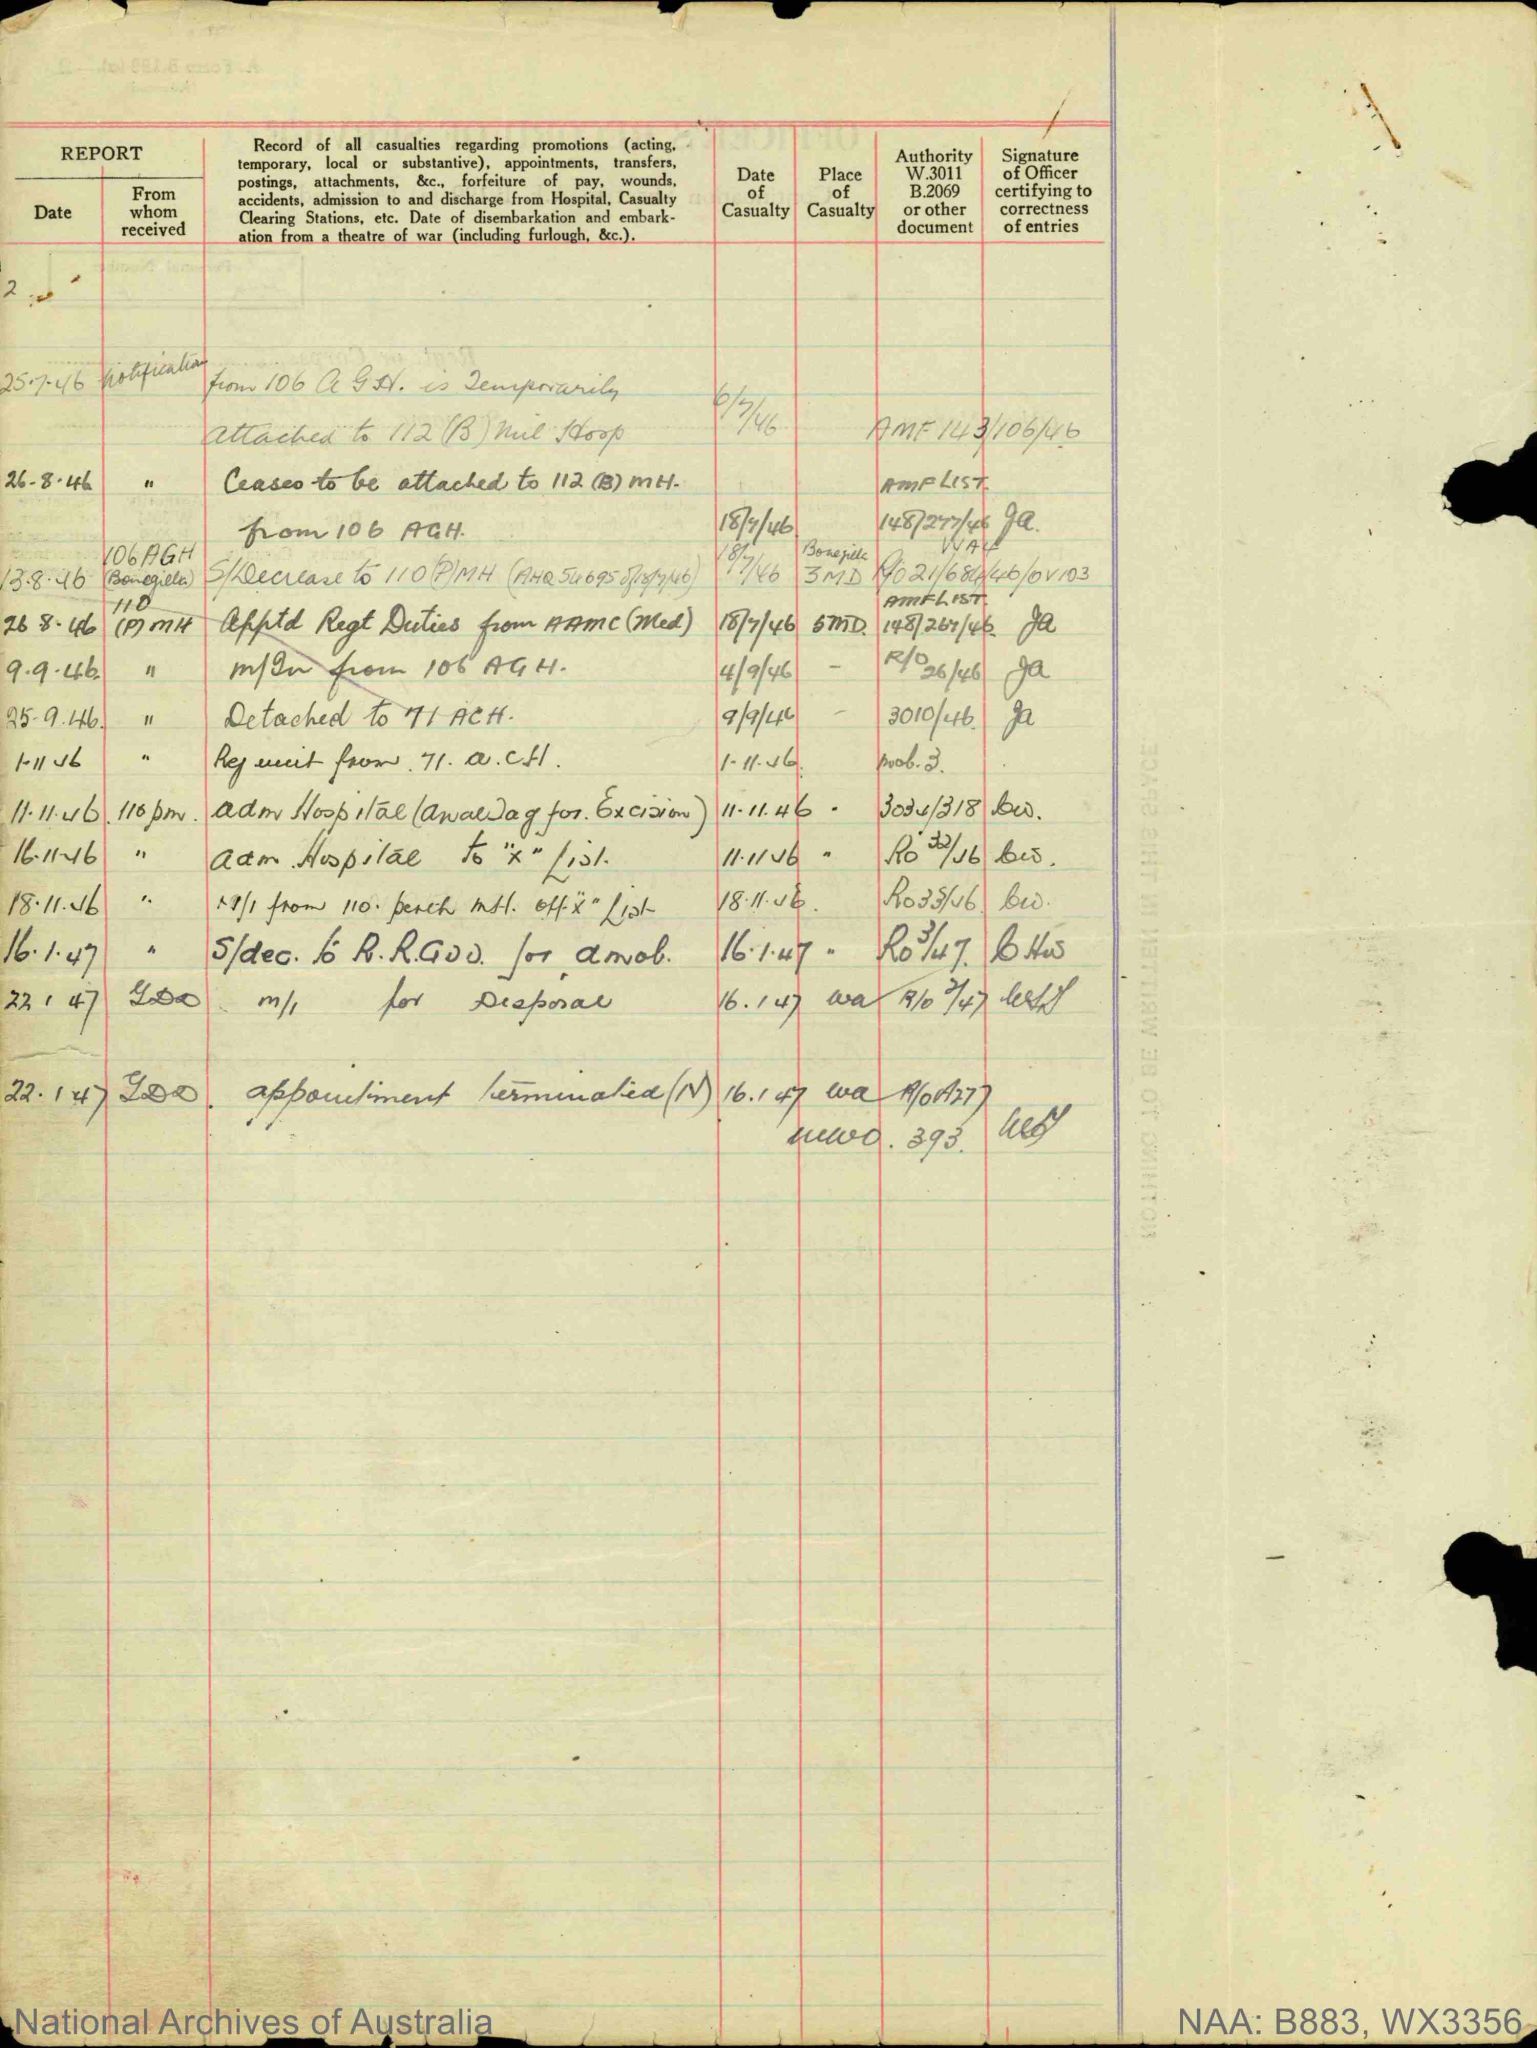 REPORT
Date
From whom received
Record of all casualties regarding promotions (acting,
temporary, local or substantive), appointments, transfers,
postings, attachments, &c., forfeiture of pay, wounds,
accidents, admission to and discharge from Hospital, Casualty
Clearing Stations, etc. Date of disembarkation and embark-
ation from a theatre of war (including furlough, &c.).
Date of Casualty
Place of Casualty
Authority W.3011 B.2069 or other document
Signature of Officer certifying to correctness of entries
2
25.7.46 Notification from 106 A G H. is Temporarily
attached to 112 (B) Mil Hosp 6/7/46 AMF 143/106/46
26-8-46 " Ceases to be attached to 112 (B) MH. AMF LIST.
from 106 AGH. 18/7/46 148/277/46 Ja.
106 AGH Bonegilla
13.8.46 (Bonegilla) S/Decrease to 110 (P) MH 18/7/46 3MD RO 21/684/46/OV103
110 AMF LIST.
26 8.46 (P) MH Apptd Regt Duties from AAMC (Med) 18/7/46 5MD. 148/267/46 Ja
9.9.46. " m/In from 106 AGH. 4/9/46 - R/O 26/46 Ja
25-9.46. " Detached to 71 ACH. 9/9/46 - 3010/46. Ja
1-11 46 " Rej unit from 71. a. C.H. 1-11.46. mob. 3.
11.11.46. 110 pm. adm Hospital ( for. Excision) 11.11.46 " 3034/318 bw.
16.11.46 " adm Hospital to "X" List. 11.11.46 " Ro 33/46 bw.
18.11.46 " from 110. perth MH. off "X" List 18.11.46. Ro 35/46 bw.
16.1.47 " S/dec. to R.R.G.D.D. for dmob. 16.1.47 " Ro 3/47.
22 1 47 GDD m/1 for Disposal 16.1 47 wa R/O 2/47
22.1 47 GDD. appointment terminated (N) 16.1 47 wa R/O A277
393.
NOTHING TO BE WRITTEN IN THIS SPACE
National Archives of Australia
NAA: B883, WX3356